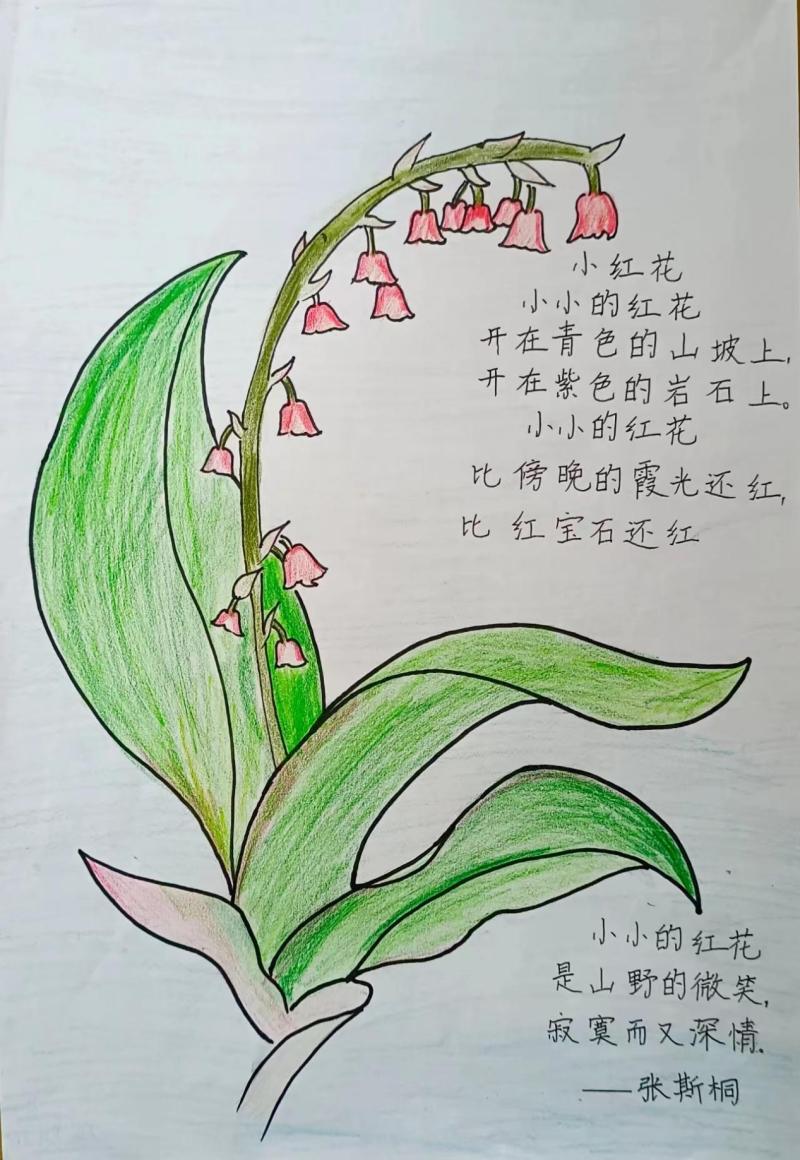 小红花
小小的红花
开在青色的山坡上,
开在紫色的岩石上。
小小的红花
比傍晚的霞光还红,
比红宝石还红
小小的红花
是山野的微笑,
寂寞而又深情.
——张斯桐